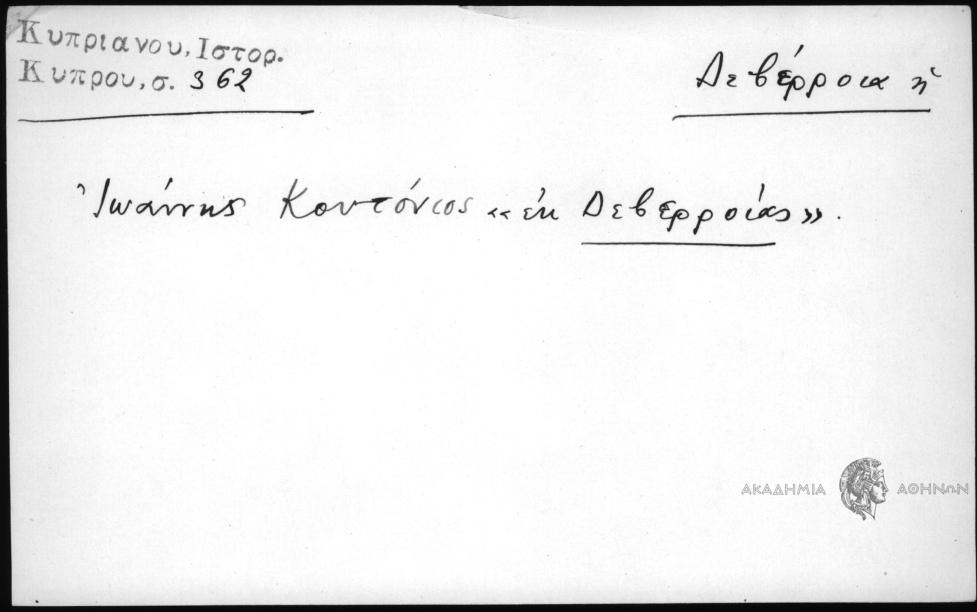 Κυπριανου, Ιστορ.
Κυπρου, σ. 362
Δεβέρροια ἡ
Ἰωάννης Κουτόνιος «ἐκ Δεβερροίας».
ΑΚΑΔΗΜΙΑ ΑΘΗΝΩΝ